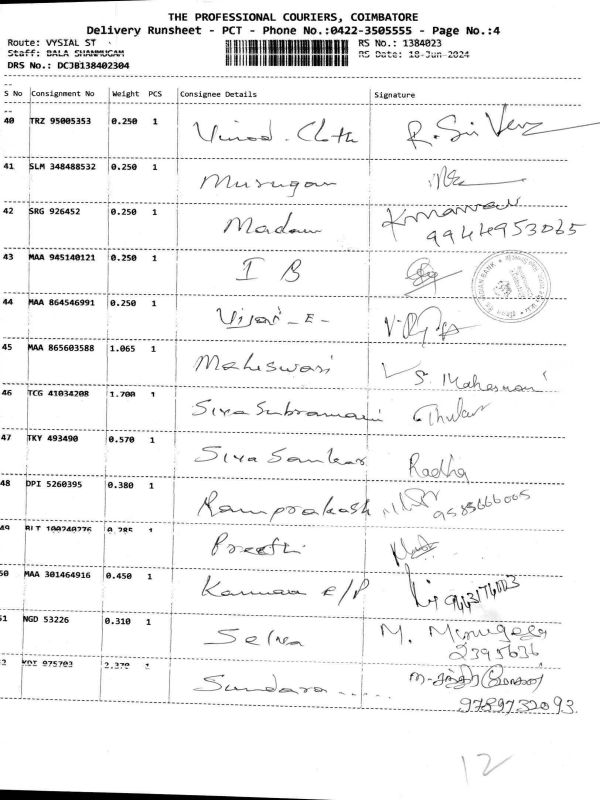 THE PROFESSIONAL COURIERS, COIMBATORE
Delivery Runsheet - PCT - Phone No.:0422-3505555 - Page No.:4
Route: VYSIAL ST RS No.: 1384023
Staff: BALA SHANMUGAM RS Date: 18-Jun-2024
DRS No.: DCJB138402304
S No Consignment No Weight PCS Consignee Details Signature
40 TRZ 95005353 0.250 1 Vinod. Cloth
41 SLM 348488532 0.250 1 Murugan
42 SRG 926452 0.250 1 Madam
9944953065
43 MAA 945140121 0.250 1 I B
44 MAA 864546991 0.250 1 Vijai - E -
45 MAA 865603588 1.065 1 Maheswari S. Maheswari
46 TCG 41034208 1.700 1 Siva Subramani
47 TKY 493490 0.570 1 Siva Sankar Radha
48 DPI 5260395 0.380 1 Ramprakash 9585666005
49 BLT 100240276 0.285 1 Preethi
50 MAA 301464916 0.450 1 Kannan E/P
51 NGD 53226 0.310 1 Selva M.
2395636
52 KDI 975703 2.370 1 Sundara .....
9789732093
12